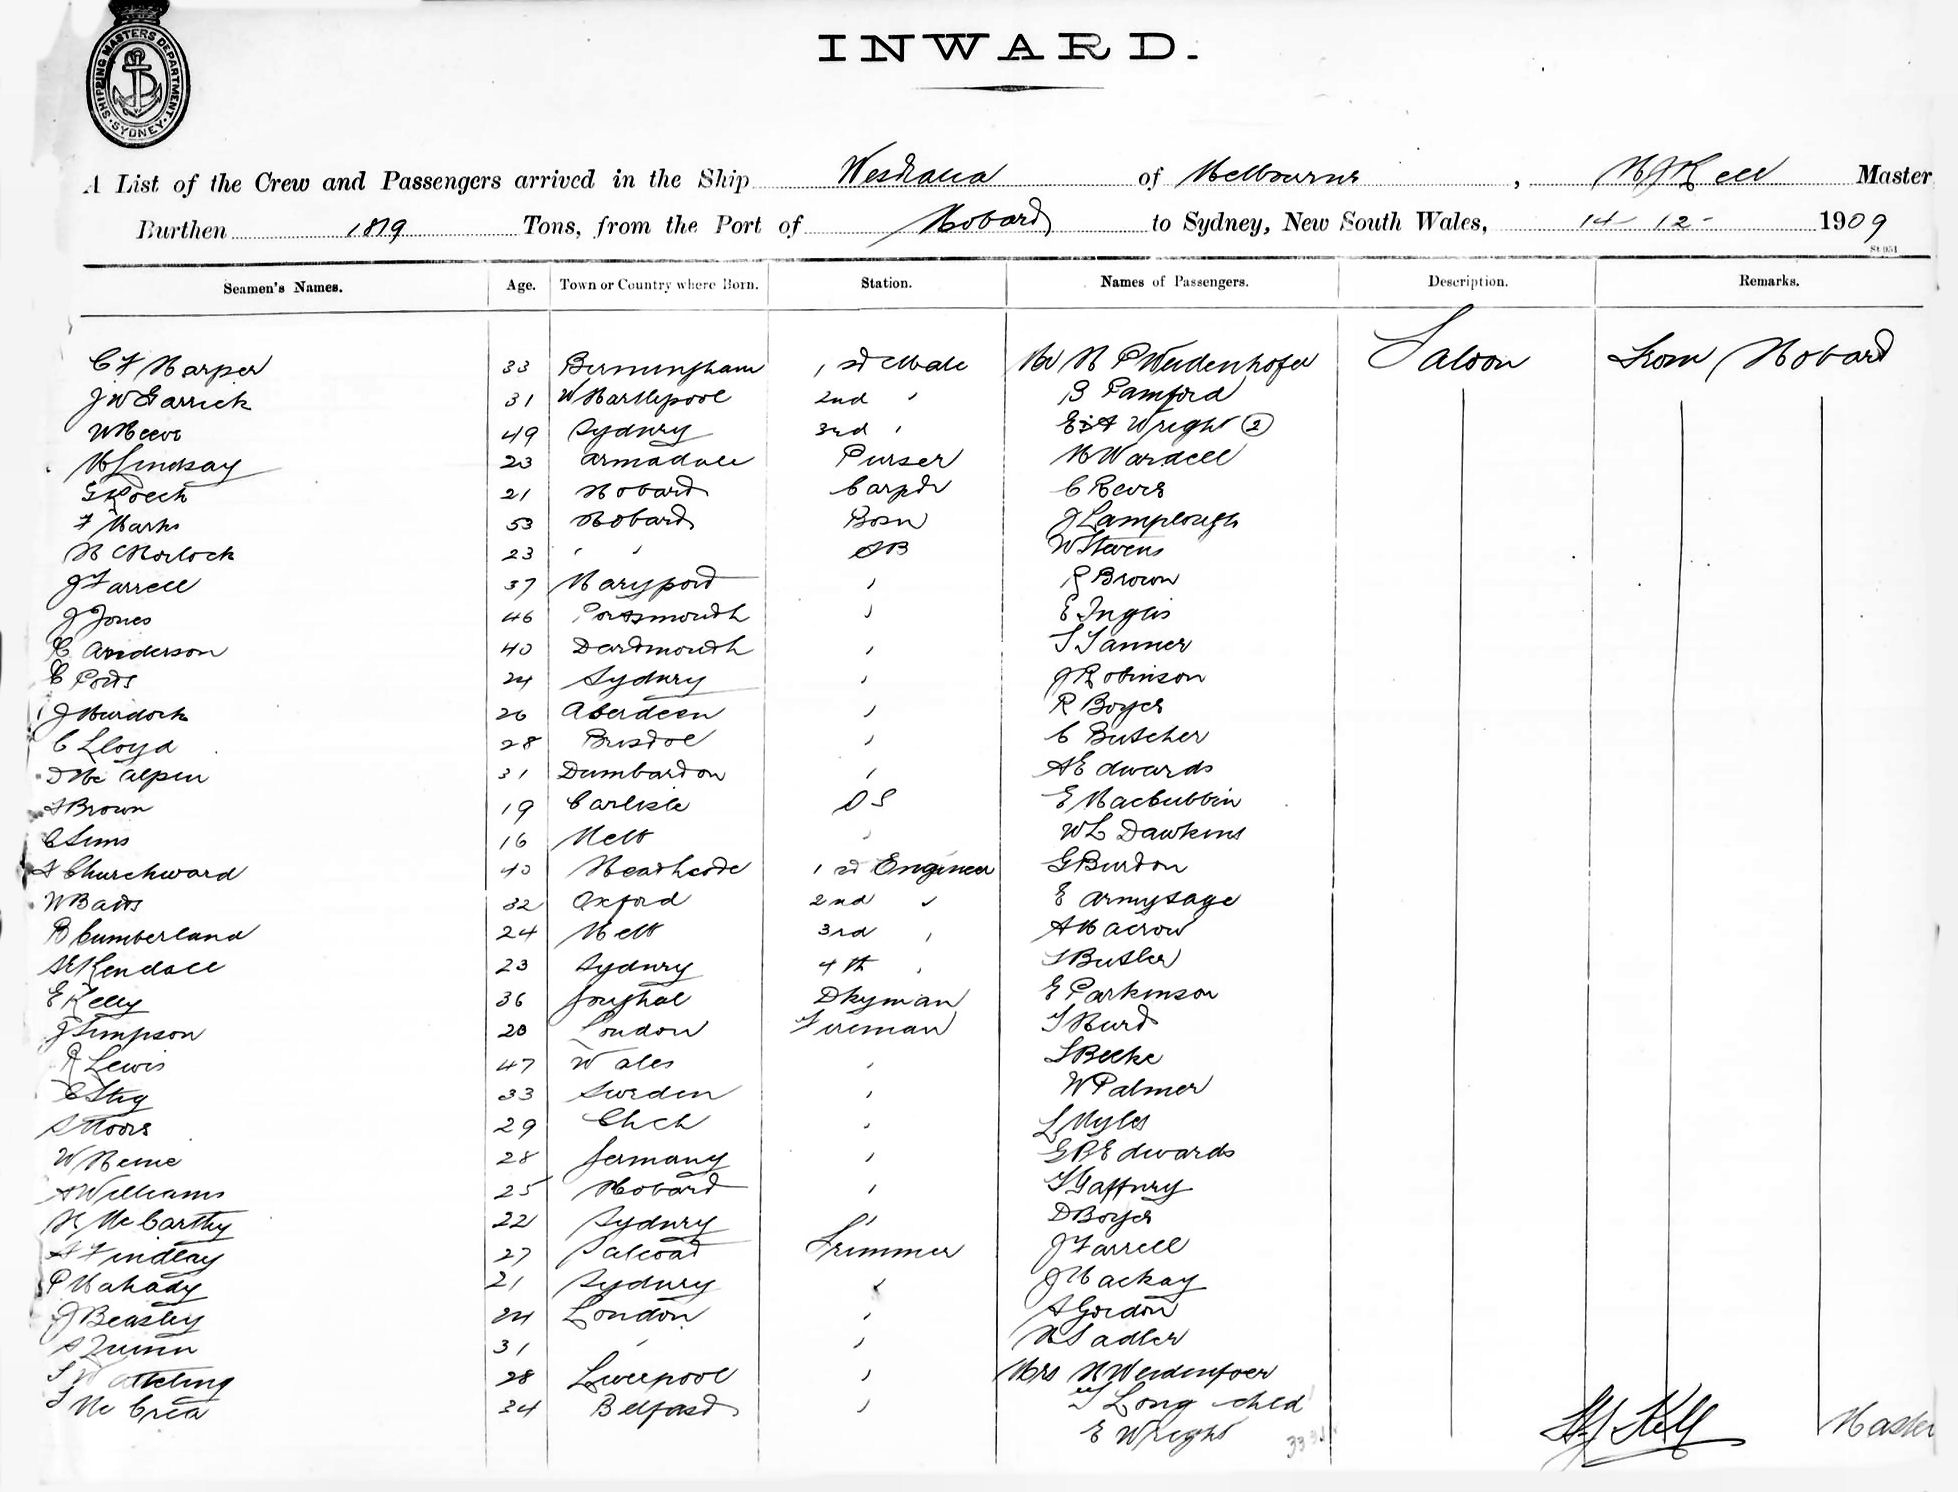 SHIPPING MASTERS DEPARTMENT
SYDNEY
INWARD.
A List of the Crew and Passengers arrived in the Ship Westralia of Melbourne, H J Kell Master
Burthen 1819 Tons, from the Port of Hobart to Sydney, New South Wales, 14 - 12 - 1909
St 951
Seamen's Names. Age. Town or Country where Born. Station. Names of Passengers. Description. Remarks.
C F Harper 33 Birmingham 1st Mate Mr H P Weidenhofer Saloon From Hobart
J W Garrick 31 W Hartlepool 2nd " S Pamford
W Reeve 49 Sydney 3rd " E & A Wright (2)
H Lindsay 23 Armadale Purser H Wardell
G Koech 21 Hobart Carptr C Reeves
F Marks 53 Hobart Bosn J Lamplough
H Morlock 23 " " AB W Stevens
J Farrell 37 Maryport " R Brown
J Jones 46 Portsmouth " E Inglis
C Anderson 40 Dartmouth " T Tanner
E Potts 24 Sydney " J Robinson
J Murdock 26 Aberdeen " R Boyes
C Lloyd 28 Bristol " C Butcher
D McAlpin 31 Dumbarton " A Edwards
A Brown 19 Carlisle OS E Maccubbin
C Sims 16 Melb " W L Dawkins
F Churchward 40 Heathcote 1st Engineer G Burdon
W Batts 32 Oxford 2nd " E Armytage
B Cumberland 24 Melb 3rd " A Macrow
A E Kendall 23 Sydney 4th " S Butler
E Kelly 36 Youghal Dkyman E Parkinson
J Simpson 28 London Fireman T Hurd
R Lewis 47 Wales " S Beeke
C Stig 33 Sweden " W Palmer
S Moore 29 Chch " L Myles
W Heine 28 Germany " G B Edwards
A Williams 25 Hobart " T Gaffney
H McCarthy 22 Sydney " D Boyes
A Findlay 27 Salcoat Trimmer J Farrell
P Mahady 21 Sydney " J Mackay
J Beasley 24 London " A Gordon
A Quinn 31 " " H Sadler
S Watteling 28 Liverpool " Mrs H Weidenfoer
T McCrea 34 Belfast " " T Long child
E Wright
H J Kell Master